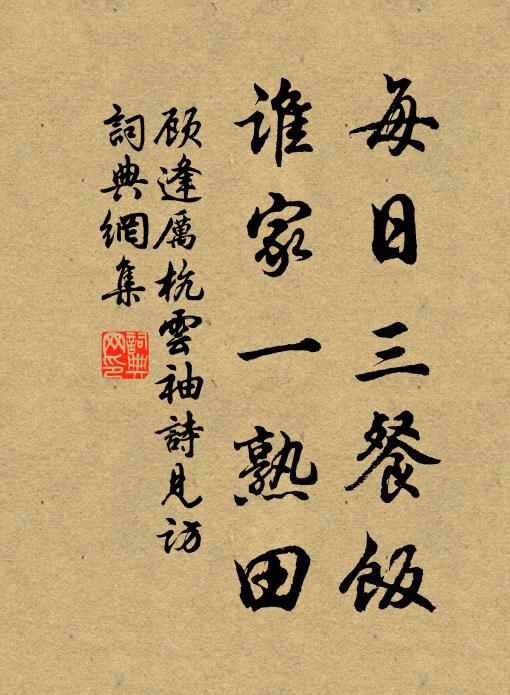 每日三餐飯
谁家一熟田
顾逢厲杭雲袖詩見访
詞典網集
詞典網印